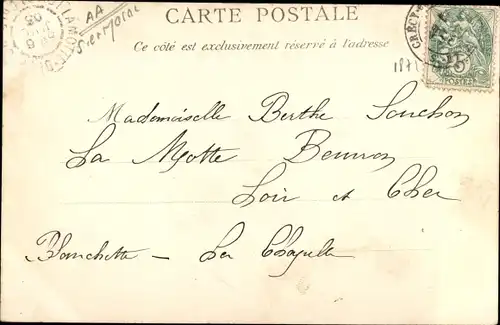 CARTE POSTALE
Ce côté est exclusivement réservé à l'adresse
AA
CRÉCY
5
POSTES
Mademoiselle Berthe Souchon
La Motte Beuvron
Loir et Cher
Blanchette - La Chapelle